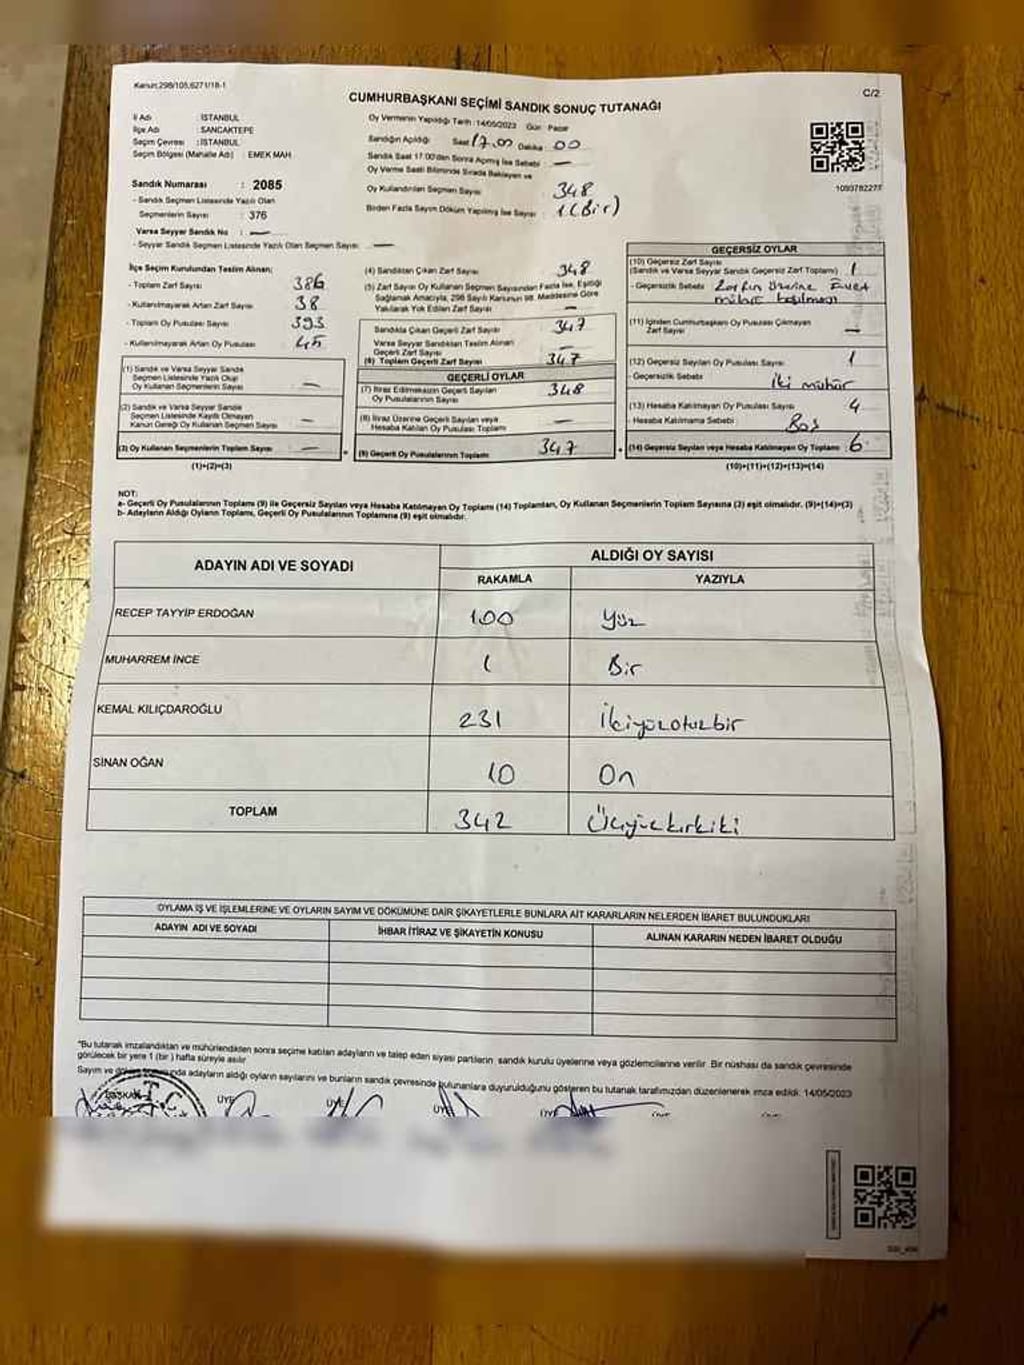 Kanun:298/105,6271/18-1
C/2
CUMHURBAŞKANI SEÇİMİ SANDIK SONUÇ TUTANAĞI
İl Adı : İSTANBUL
İlçe Adı : SANCAKTEPE
Seçim Çevresi : İSTANBUL
Seçim Bölgesi (Mahalle Adı) : EMEK MAH
Sandık Numarası : 2085
- Sandık Seçmen Listesinde Yazılı Olan
Seçmenlerin Sayısı : 376
Varsa Seyyar Sandık No : —
- Seyyar Sandık Seçmen Listesinde Yazılı Olan Seçmen Sayısı : —
Oy Vermenin Yapıldığı Tarih : 14/05/2023 Gün : Pazar
Sandığın Açıldığı Saat 17.00 Dakika 00
Sandık Saat 17:00'den Sonra Açılmış İse Sebebi : —
Oy Verme Saati Bitiminde Sırada Bekleyen ve
Oy Kullandırılan Seçmen Sayısı : 348
Birden Fazla Sayım Döküm Yapılmış İse Sayısı : 1 (Bir)
1093782277
İlçe Seçim Kurulundan Teslim Alınan;
- Toplam Zarf Sayısı : 386
- Kullanılmayarak Artan Zarf Sayısı : 38
- Toplam Oy Pusulası Sayısı : 393
- Kullanılmayarak Artan Oy Pusulası : 45
(1) Sandık ve Varsa Seyyar Sandık
Seçmen Listesinde Yazılı Olup
Oy Kullanan Seçmen Sayısı : —
(2) Sandık ve Varsa Seyyar Sandık
Seçmen Listesinde Kayıtlı Olmayan
Kanun Gereği Oy Kullanan Seçmen Sayısı : —
(3) Oy Kullanan Seçmenlerin Toplam Sayısı : —
(1)+(2)=(3)
(4) Sandıktan Çıkan Zarf Sayısı : 348
(5) Zarf Sayısı Oy Kullanan Seçmen Sayısından Fazla İse, Eşitliği
Sağlamak Amacıyla, 298 Sayılı Kanunun 98. Maddesine Göre
Yakılarak Yok Edilen Zarf Sayısı : —
Sandıkta Çıkan Geçerli Zarf Sayısı : 347
Varsa Seyyar Sandıktan Teslim Alınan
Geçerli Zarf Sayısı : —
(6) Toplam Geçerli Zarf Sayısı : 347
GEÇERLİ OYLAR
(7) İtiraz Edilmeksizin Geçerli Sayılan
Oy Pusulalarının Sayısı : 348
(8) İtiraz Üzerine Geçerli Sayılan veya
Hesaba Katılan Oy Pusulası Toplamı : —
(9) Geçerli Oy Pusulalarının Toplamı : 347
GEÇERSİZ OYLAR
(10) Geçersiz Zarf Sayısı
(Sandık ve Varsa Seyyar Sandık Geçersiz Zarf Toplamı) : 1
- Geçersizlik Sebebi : Zarfın üzerine Evet
mühür basılması
(11) İçinden Cumhurbaşkanı Oy Pusulası Çıkmayan
Zarf Sayısı : —
(12) Geçersiz Sayılan Oy Pusulası Sayısı : 1
- Geçersizlik Sebebi : İki mühür
(13) Hesaba Katılmayan Oy Pusulası Sayısı : 4
- Hesaba Katılmama Sebebi : Boş
(14) Geçersiz Sayılan veya Hesaba Katılmayan Oy Toplamı : 6
(10)+(11)+(12)+(13)=(14)
NOT:
a- Geçerli Oy Pusulalarının Toplamı (9) ile Geçersiz Sayılan veya Hesaba Katılmayan Oy Toplamı (14) Toplamları, Oy Kullanan Seçmenlerin Toplam Sayısına (3) eşit olmalıdır. (9)+(14)=(3)
b- Adayların Aldığı Oyların Toplamı, Geçerli Oy Pusulalarının Toplamına (9) eşit olmalıdır.
ADAYIN ADI VE SOYADI
ALDIĞI OY SAYISI
RAKAMLA YAZIYLA
RECEP TAYYİP ERDOĞAN 100 Yüz
MUHARREM İNCE 1 Bir
KEMAL KILIÇDAROĞLU 231 İkiyüzotuzbir
SİNAN OĞAN 10 On
TOPLAM 342 Üçyüzkırkiki
OYLAMA İŞ VE İŞLEMLERİNE VE OYLARIN SAYIM VE DÖKÜMÜNE DAİR ŞİKAYETLERLE BUNLARA AİT KARARLARIN NELERDEN İBARET BULUNDUKLARI
ADAYIN ADI VE SOYADI İHBAR İTİRAZ VE ŞİKAYETİN KONUSU ALINAN KARARIN NEDEN İBARET OLDUĞU
*Bu tutanak imzalandıktan ve mühürlendikten sonra seçime katılan adayların ve talep eden siyasi partilerin sandık kurulu üyelerine veya gözlemcilerine verilir. Bir nüshası da sandık çevresinde
görülecek bir yere 1 (bir) hafta süreyle asılır.
Sayım ve adayların aldığı oyların sayılarını ve bunların sandık çevresinde bulunanlara duyurulduğunu gösteren bu tutanak tarafımızdan düzenlenerek imza edildi. 14/05/2023
BAŞKAN ÜYE ÜYE ÜYE ÜYE